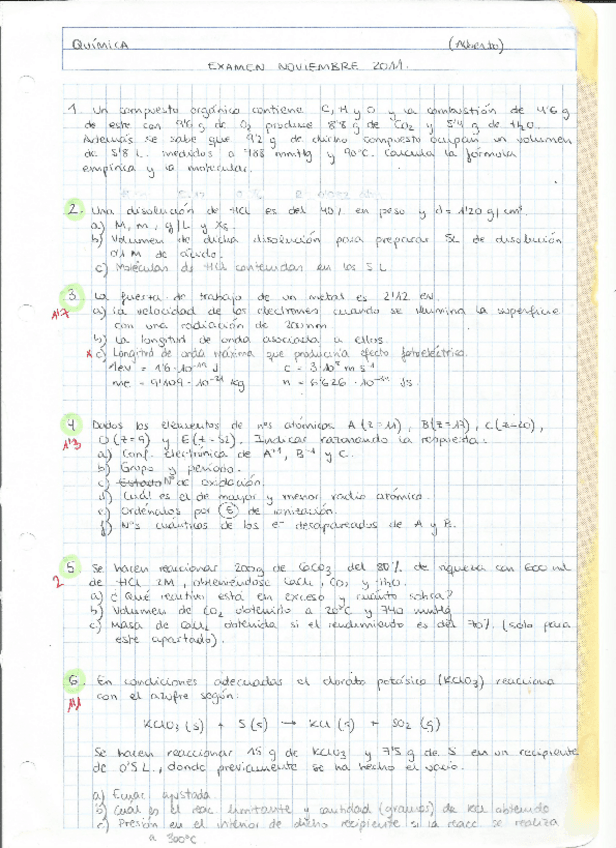 QUÍMICA (Alberto)
EXAMEN NOVIEMBRE 2011.
1. Un compuesto orgánico contiene C, H y O y la combustión de 4'6 g
de este con 9'6 g de O2 produce 8'8 g de CO2 y 5'4 g de H2O.
Además se sabe que 9'2 g de dicho compuesto ocupan un volumen
de 5'8 L. medidos a 768 mmHg y 90°C. Calcula la fórmula
empírica y la molecular.
2. Una disolución de HCl es del 40% en peso y d = 1'20 g/cm³.
a) M, m, g/L y Xs.
b) Volumen de dicha disolución para preparar 5L de disolución
0'1 M de ácido.
c) Moléculas de HCl contenidas en los 5 L.
3. La fuerza de trabajo de un metal es 2'12 eV.
a) La velocidad de los electrones cuando se ilumina la superficie
con una radiación de 200nm.
b) La longitud de onda asociada a ellos.
* c) Longitud de onda máxima que produciría efecto fotoeléctrico.
1eV = 1'6·10⁻¹⁹ J c = 3·10⁸ m s⁻¹
me = 9'109·10⁻³¹ kg h = 6'626·10⁻³⁴ Js.
4. Dados los elementos de nos atómicos A (Z=11), B (Z=17), C (Z=20),
D (Z=9) y E (Z=52). Indicar razonando la respuesta:
a) Conf. electrónica de A⁺¹, B⁻¹ y C.
b) Grupo y periodo.
c) Estado Nº de oxidación.
d) Cuál es el de mayor y menor radio atómico.
e) Ordénalos por de ionización.
f) Nºs cuánticos de los e⁻ desapareados de A y B.
5. Se hacen reaccionar 200g de CaCO3 del 80% de riqueza con 600 ml
2 de HCl 2M, obteniéndose CaCl2, CO2 y H2O.
a) ¿Qué reactivo está en exceso y cuánto sobra?
b) Volumen de CO2 obtenido a 20°C y 740 mmHg
c) Masa de CaCl2 obtenida si el rendimiento es del 70% (solo para
este apartado).
6. En condiciones adecuadas el clorato potásico (KClO3) reacciona
con el azufre según:
KClO3 (s) + S (s) → KCl (s) + SO2 (g)
Se hacen reaccionar 15 g de KClO3 y 7'5 g de S en un recipiente
de 0'5 L., donde previamente se ha hecho el vacío.
a) Ecuac. ajustada
b) Cuál es el reac. limitante y cantidad (gramos) de KCl obtenido
c) Presión en el interior de dicho recipiente si la reacc se realiza
a 300°C.